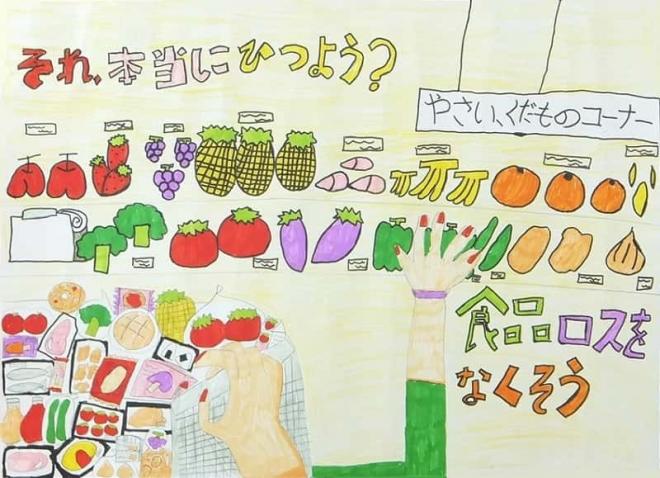 それ、本当にひつよう?
やさい、くだものコーナー
食品ロスを
なくそう